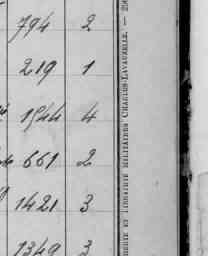 794 2
219 1
1544 4
661 2
1421 3
1349 3
ET LIBRAIRIE MILITAIRES CHARLES-LAVAUZELLE. —